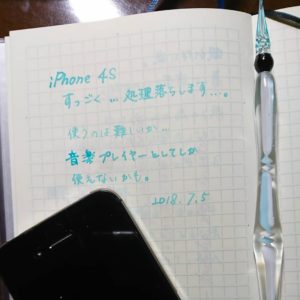 iPhone 4S
すっごく…処理落ちします…。
使うのは難しいか…
音楽プレイヤーとしてしか
使えないかも。
2018.7.5